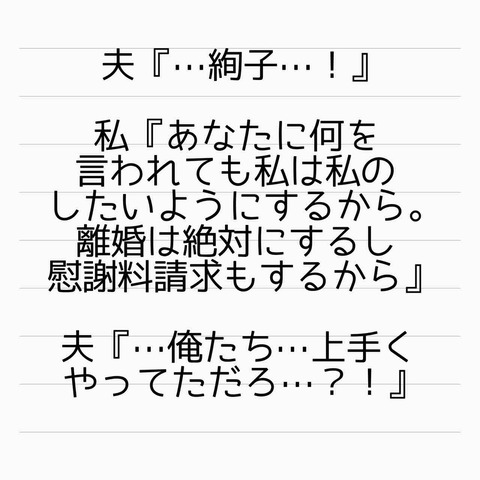 夫『…絢子…！』
私『あなたに何を
言われても私は私の
したいようにするから。
離婚は絶対にするし
慰謝料請求もするから』
夫『…俺たち…上手く
やってただろ…？！』